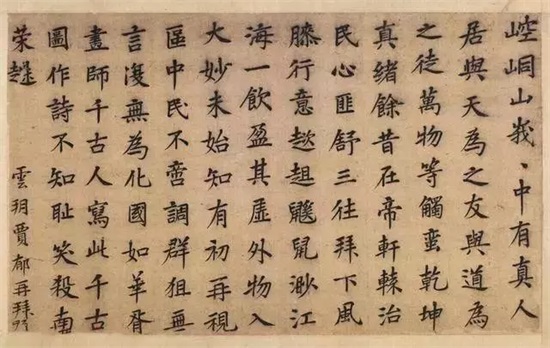 崆峒山峩〻中有真人
居與天為之友與道為
之徒萬物等觸蛮乾坤
真緒餘昔在帝軒轅治
民心匪舒三往拜下風
膝行意趑趄鼴鼠渺江
海一飲盈其虛外物入
大妙未始知有初再視
區中民不啻調群狙無
言復無為化國如華胥
畫師千古人寫此千古
圖作詩不知耻笑殺南
荣趎
雲玥賈郁再拜時